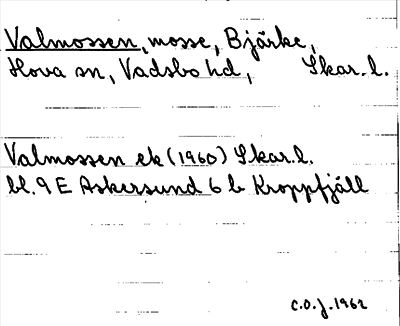 Valmossen, mosse, Bjärke,
Hova sn, Vadsbo hd, Skar. l.
Valmossen ek (1960) Skar. l.
bl. 9 E Askersund 6 b Kroppfjäll
C.O.J. 1962